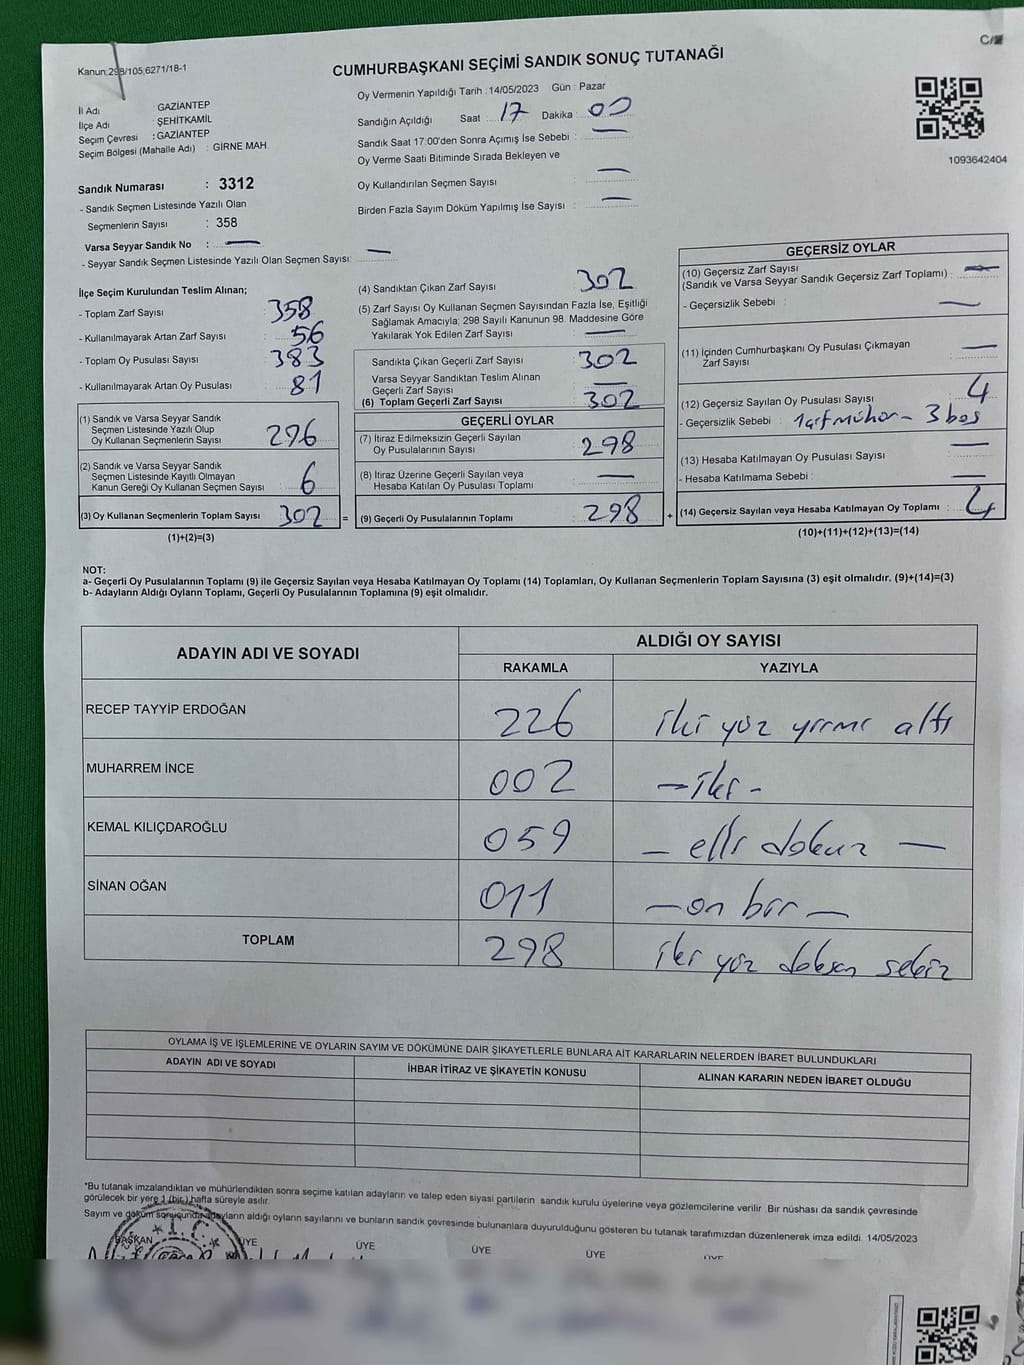 Kanun:298/105,6271/18-1
C/
CUMHURBAŞKANI SEÇİMİ SANDIK SONUÇ TUTANAĞI
İl Adı : GAZİANTEP
İlçe Adı : ŞEHİTKAMİL
Seçim Çevresi : GAZİANTEP
Seçim Bölgesi (Mahalle Adı) : GİRNE MAH.
Sandık Numarası : 3312
- Sandık Seçmen Listesinde Yazılı Olan
Seçmenlerin Sayısı : 358
Varsa Seyyar Sandık No : —
- Seyyar Sandık Seçmen Listesinde Yazılı Olan Seçmen Sayısı: —
Oy Vermenin Yapıldığı Tarih : 14/05/2023 Gün : Pazar
Sandığın Açıldığı Saat : 17 Dakika : 00
Sandık Saat 17:00'den Sonra Açımış İse Sebebi : —
Oy Verme Saati Bitiminde Sırada Bekleyen ve
Oy Kullandırılan Seçmen Sayısı : —
Birden Fazla Sayım Döküm Yapılmış İse Sayısı : —
1093642404
İlçe Seçim Kurulundan Teslim Alınan;
- Toplam Zarf Sayısı : 358
- Kullanılmayarak Artan Zarf Sayısı : 56
- Toplam Oy Pusulası Sayısı : 383
- Kullanılmayarak Artan Oy Pusulası : 81
(1) Sandık ve Varsa Seyyar Sandık
Seçmen Listesinde Yazılı Olup
Oy Kullanan Seçmenlerin Sayısı : 296
(2) Sandık ve Varsa Seyyar Sandık
Seçmen Listesinde Kayıtlı Olmayan
Kanun Gereği Oy Kullanan Seçmen Sayısı : 6
(3) Oy Kullanan Seçmenlerin Toplam Sayısı : 302 =
(1)+(2)=(3)
(4) Sandıktan Çıkan Zarf Sayısı : 302
(5) Zarf Sayısı Oy Kullanan Seçmen Sayısından Fazla İse, Eşitliği
Sağlamak Amacıyla; 298 Sayılı Kanunun 98. Maddesine Göre
Yakılarak Yok Edilen Zarf Sayısı : —
Sandıkta Çıkan Geçerli Zarf Sayısı : 302
Varsa Seyyar Sandıktan Teslim Alınan
Geçerli Zarf Sayısı : —
(6) Toplam Geçerli Zarf Sayısı : 302
GEÇERLİ OYLAR
(7) İtiraz Edilmeksizin Geçerli Sayılan
Oy Pusulalarının Sayısı : 298
(8) İtiraz Üzerine Geçerli Sayılan veya
Hesaba Katılan Oy Pusulası Toplamı : —
(9) Geçerli Oy Pusulalarının Toplamı : 298 +
GEÇERSİZ OYLAR
(10) Geçersiz Zarf Sayısı
(Sandık ve Varsa Seyyar Sandık Geçersiz Zarf Toplamı) : —
- Geçersizlik Sebebi : —
(11) İçinden Cumhurbaşkanı Oy Pusulası Çıkmayan
Zarf Sayısı : —
(12) Geçersiz Sayılan Oy Pusulası Sayısı : 4
- Geçersizlik Sebebi : 3 boş
(13) Hesaba Katılmayan Oy Pusulası Sayısı : —
- Hesaba Katılmama Sebebi : —
(14) Geçersiz Sayılan veya Hesaba Katılmayan Oy Toplamı : 4
(10)+(11)+(12)+(13)=(14)
NOT:
a- Geçerli Oy Pusulalarının Toplamı (9) ile Geçersiz Sayılan veya Hesaba Katılmayan Oy Toplamı (14) Toplamları, Oy Kullanan Seçmenlerin Toplam Sayısına (3) eşit olmalıdır. (9)+(14)=(3)
b- Adayların Aldığı Oyların Toplamı, Geçerli Oy Pusulalarının Toplamına (9) eşit olmalıdır.
ADAYIN ADI VE SOYADI ALDIĞI OY SAYISI
RAKAMLA YAZIYLA
RECEP TAYYİP ERDOĞAN 226 iki yüz yirmi altı
MUHARREM İNCE 002 - iki -
KEMAL KILIÇDAROĞLU 059 - elli dokuz -
SİNAN OĞAN 011 - on bir -
TOPLAM 298 iki yüz doksan sekiz
OYLAMA İŞ VE İŞLEMLERİNE VE OYLARIN SAYIM VE DÖKÜMÜNE DAİR ŞİKAYETLERLE BUNLARA AİT KARARLARIN NELERDEN İBARET BULUNDUKLARI
ADAYIN ADI VE SOYADI İHBAR İTİRAZ VE ŞİKAYETİN KONUSU ALINAN KARARIN NEDEN İBARET OLDUĞU
*Bu tutanak imzalandıktan ve mühürlendikten sonra seçime katılan adayların ve talep eden siyasi partilerin sandık kurulu üyelerine veya gözlemcilerine verilir. Bir nüshası da sandık çevresinde
görülecek bir yere 1 (bir) hafta süreyle asılır.
Sayım ve döküm sonucunda adayların aldığı oyların sayılarını ve bunların sandık çevresinde bulunanlara duyurulduğunu gösteren bu tutanak tarafımızdan düzenlenerek imza edildi. 14/05/2023
BAŞKAN ÜYE ÜYE ÜYE ÜYE ÜYE
T.C.